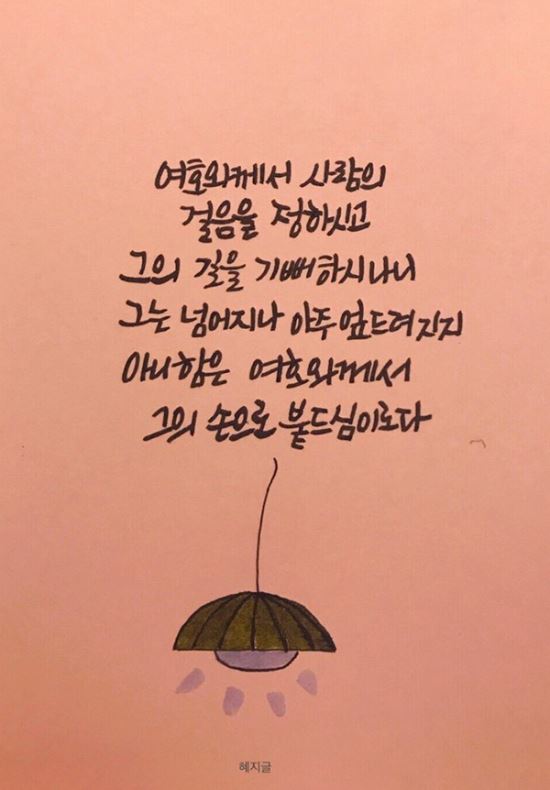 여호와께서 사람의
걸음을 정하시고
그의 길을 기뻐하시나니
그는 넘어지나 아주 엎드러지지
아니함은 여호와께서
그의 손으로 붙드심이로다
혜지글